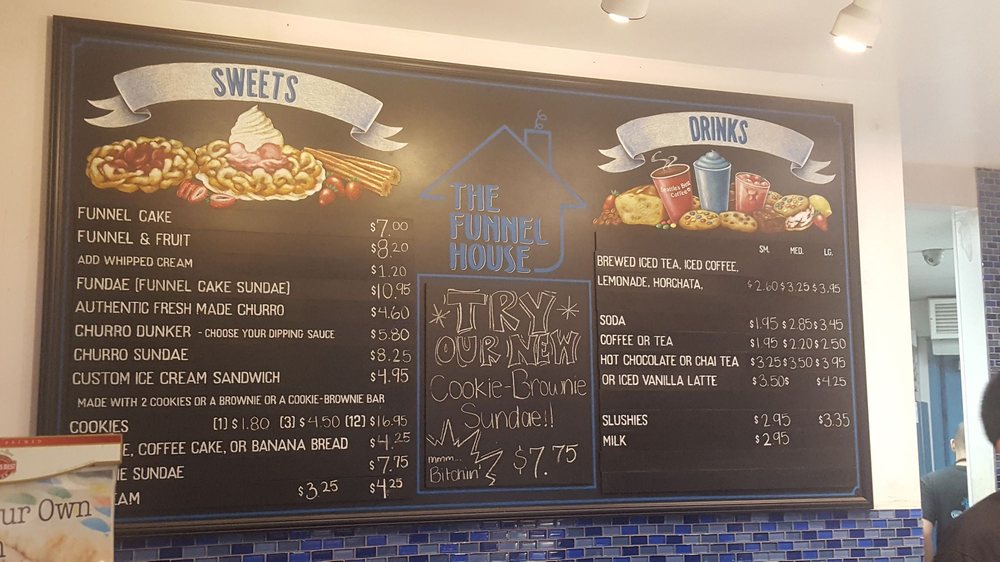 SWEETS
FUNNEL CAKE $7.00
FUNNEL & FRUIT $8.20
ADD WHIPPED CREAM $1.20
FUNDAE (FUNNEL CAKE SUNDAE) $10.95
AUTHENTIC FRESH MADE CHURRO $4.60
CHURRO DUNKER - CHOOSE YOUR DIPPING SAUCE $5.80
CHURRO SUNDAE $8.25
CUSTOM ICE CREAM SANDWICH $4.95
MADE WITH 2 COOKIES OR A BROWNIE OR A COOKIE-BROWNIE BAR
COOKIES (1) $1.80 (3) $4.50 (12) $16.95
E, COFFEE CAKE, OR BANANA BREAD $4.25
IE SUNDAE $7.75
EAM $3.25 $4.25
ur Own
THE
FUNNEL
HOUSE
TRY
OUR NEW
Cookie-Brownie
Sundae!!
mmm...
Bitchin' $7.75
DRINKS
Seattle's Best
Coffee
SM. MED. LG.
BREWED ICED TEA, ICED COFFEE,
LEMONADE, HORCHATA, $2.60 $3.25 $3.95
SODA $1.95 $2.85 $3.45
COFFEE OR TEA $1.95 $2.20 $2.50
HOT CHOCOLATE OR CHAI TEA $3.25 $3.50 $3.95
OR ICED VANILLA LATTE $3.50 $4.25
SLUSHIES $2.95 $3.35
MILK $2.95